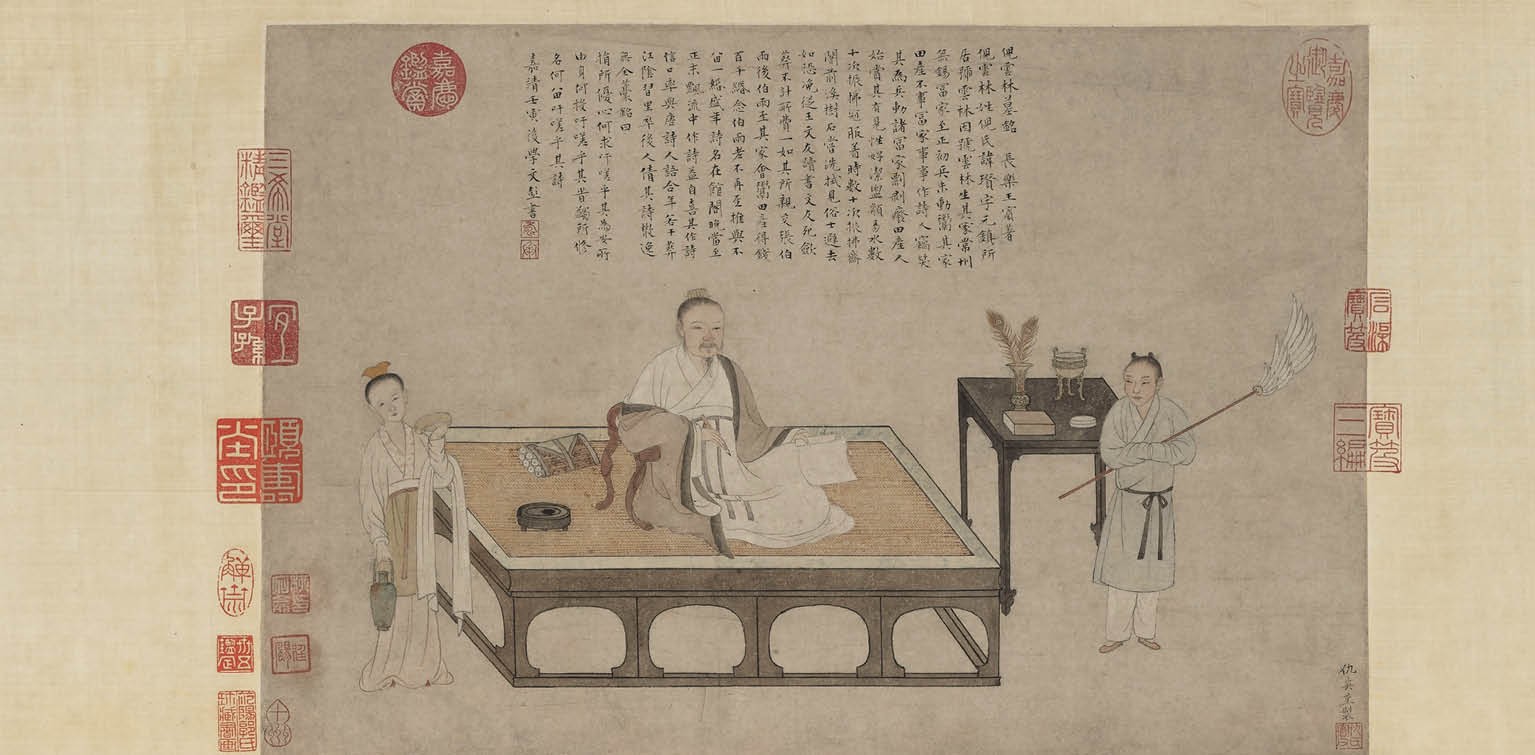 嘉慶御覽之寶
石渠寶笈
寶笈三編
倪雲林墓銘　長樂王賓著
倪雲林姓倪氏諱瓚字元鎮所
居號雲林因號雲林生其家常州
無錫富家至正初兵未動鬻其家
田產不事富家事事作詩人竊笑
其為兵動諸富家剽剝廢田產人
始賞其有見性好潔盥頮易水數
十次振拂冠服著時數十次振拂齋
閣前後樹石嘗洗拭見俗士避去
如恐浼從王文友讀書文友死斂
葬不計所費一如其所親交張伯
雨後伯雨至其家會鬻田產得錢
百千緡念伯雨老不再至推與不
留一緡盛年詩名在館閣晚當至
正末飄流中作詩益自喜其作詩
信口率與唐詩人語合年若干葬
江陰習里卒後人倩其詩散逸
無全藁銘曰
猗所優心何求吁嗟乎其為安所
由身何投吁嗟乎其昔獨所修
名何留吁嗟乎其詩
嘉靖壬寅後學文彭書
仇英
嘉慶鑑賞
三希堂精鑑璽
宜子孫